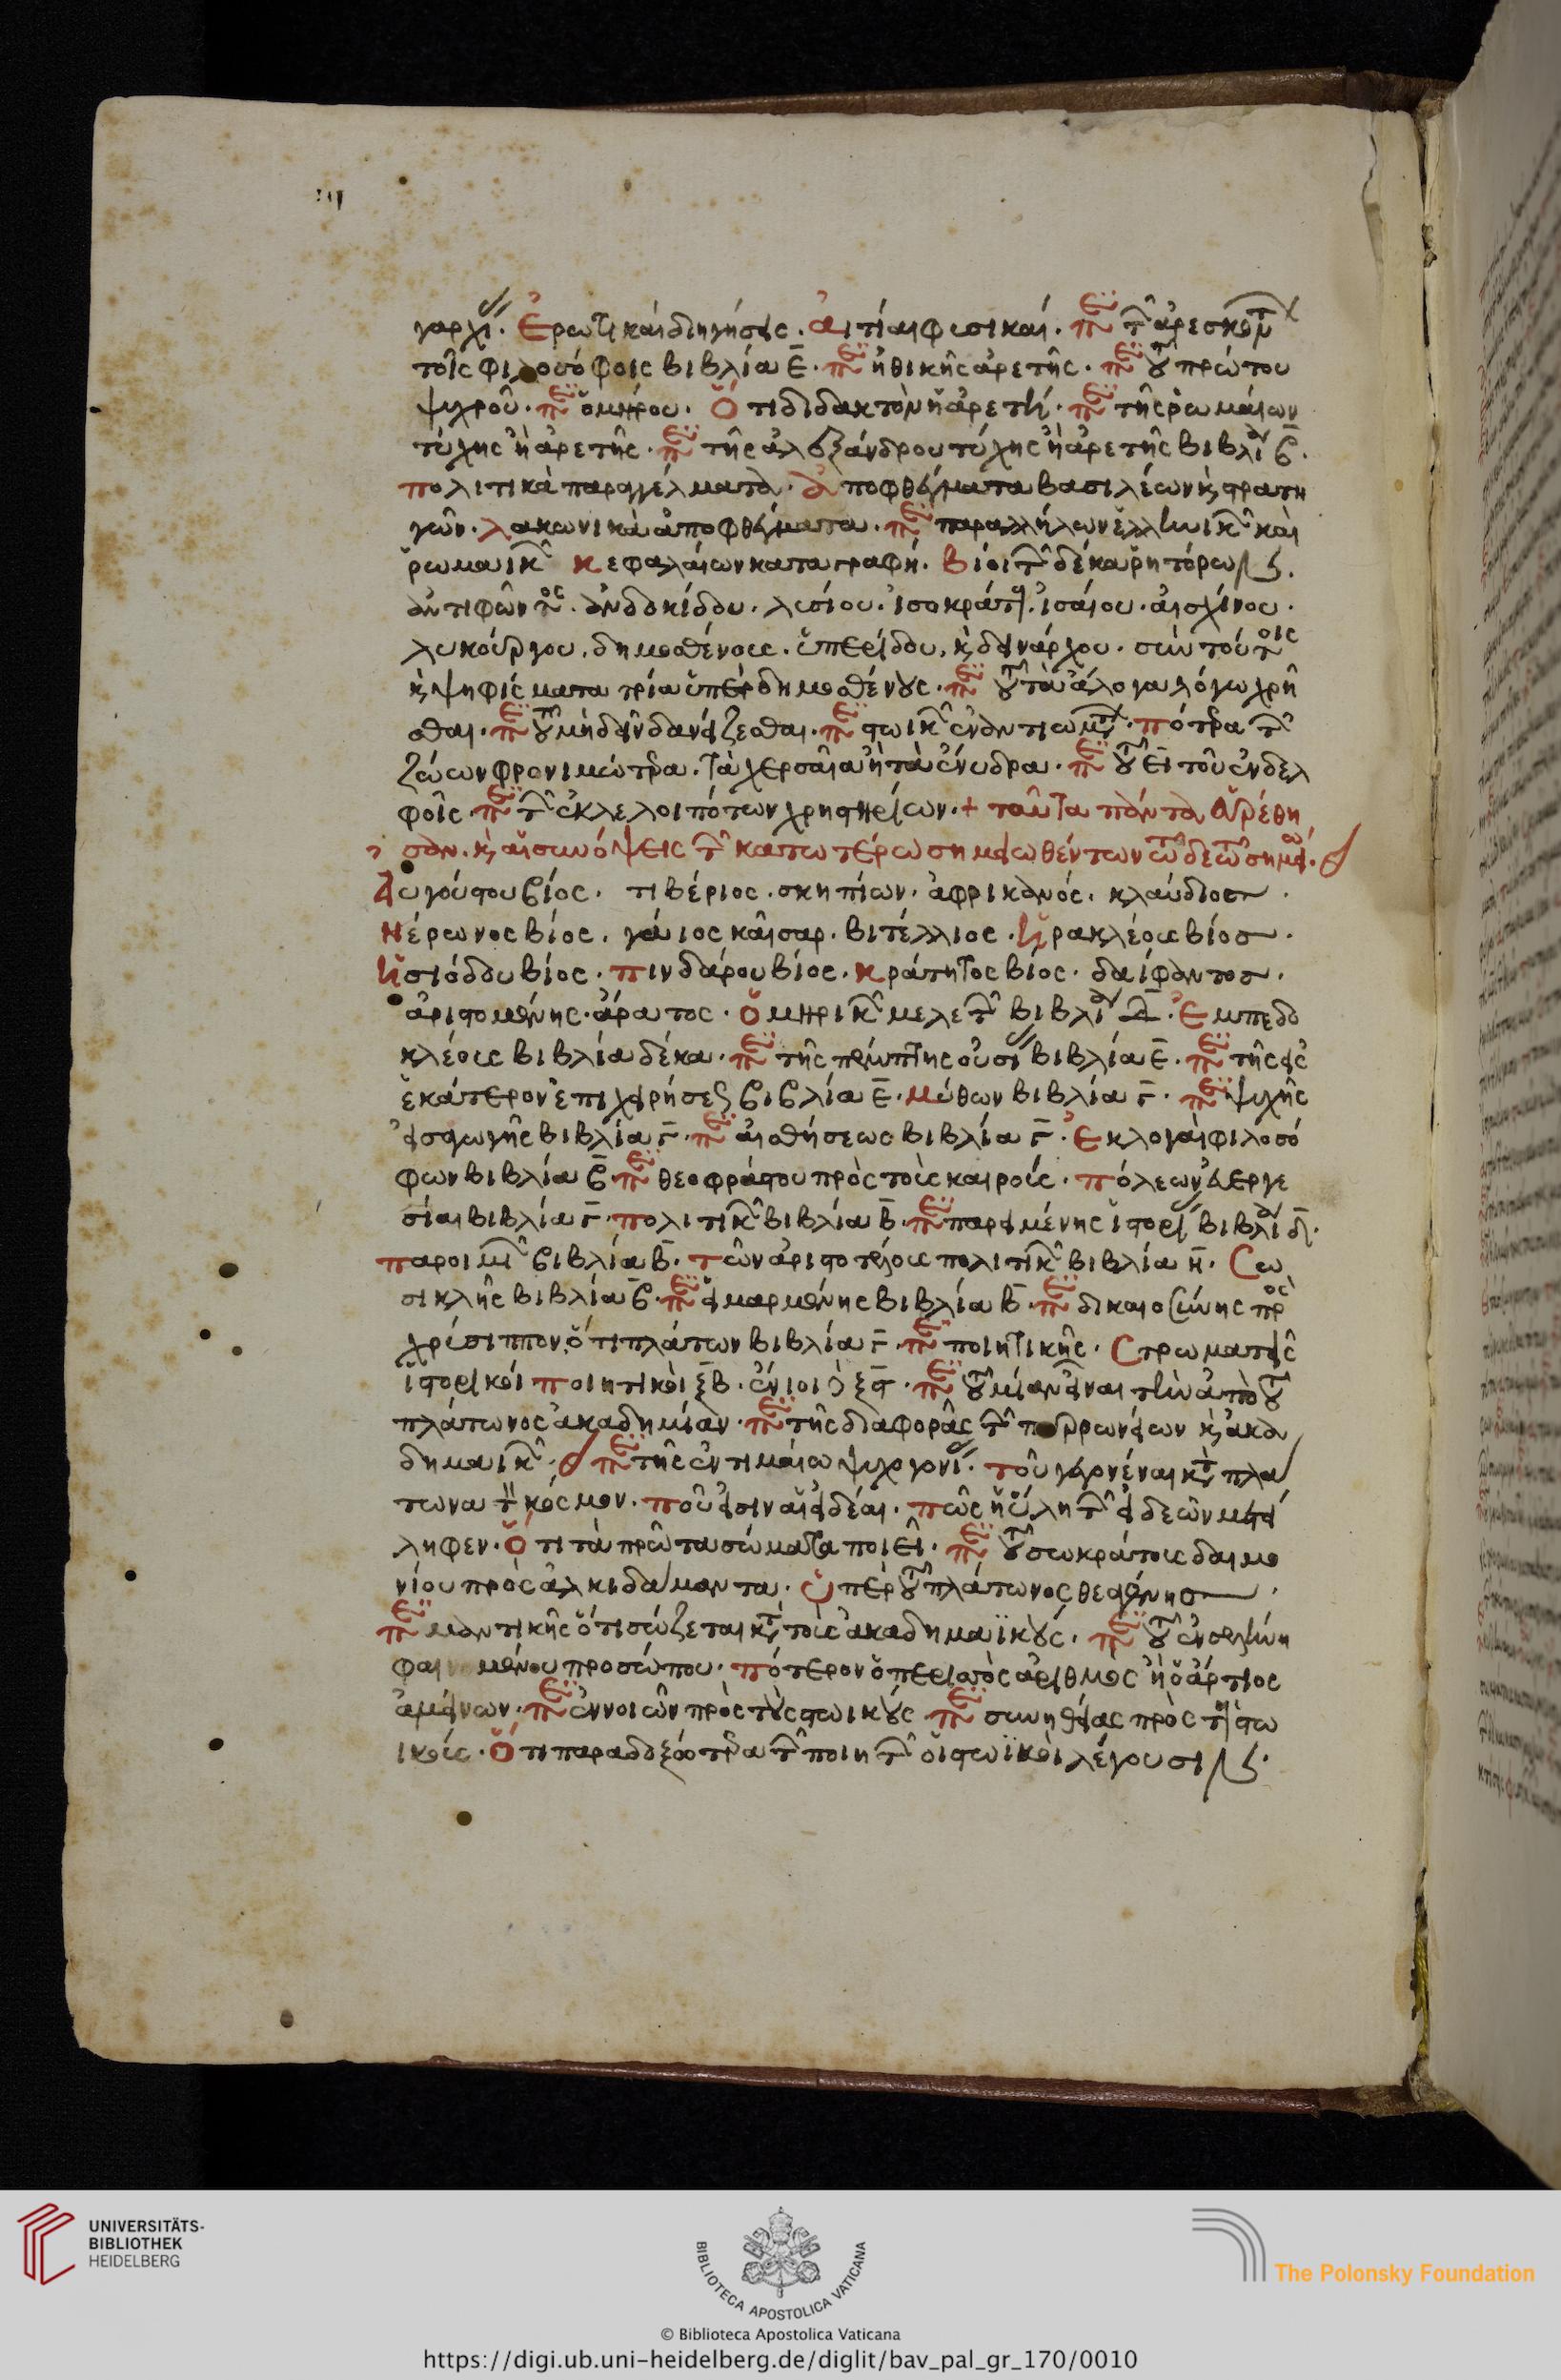 γαρχί(ας). Ἐρωτικαὶ διηγήσεις. Αἰτίαι φυσικαί. περὶ τῶν ἀρεσκόντων
τοῖς φιλοσόφοις βιβλία ε̅. περὶ ἠθικῆς ἀρετῆς. περὶ τοῦ πρώτου
ψυχροῦ. περὶ ὁμήρου. Ὅτι διδακτὸν ἡ ἀρετή. περὶ τῆς ῥωμαίων
τύχης ἢ ἀρετῆς. περὶ τῆς ἀλεξάνδρου τύχης ἢ ἀρετῆς βιβλία β̅.
πολιτικὰ παραγγέλματα. Ἀποφθέγματα βασιλέων κ(αὶ) στρατη
γῶν. λακωνικὰ ἀποφθέγματα. περὶ παραλλήλων ἑλληνικῶν καὶ
ῥωμαικῶν κεφαλαίων καταγραφή. Βίοι τῶν δέκα ῥητόρων
ἀντιφῶντος. ἀνδοκίδου. λυσίου. ἰσοκράτους. ἰσαίου. αἰσχίνου.
λυκούργου. δημοσθένους. ὑπερίδου, κ(αὶ) δεινάρχου. σὺν τούτοις
κ(αὶ) ψηφίσματα τρία ὑπὲρ δημοσθένους. περὶ τοῦ τὰ ἄλογα λόγω χρῆ
σθαι. περὶ τοῦ μὴ δεῖν δανείζεσθαι. περὶ στωικῶν ἐναντιωμάτων. πότερα τῶν
ζώων φρονιμώτερα. τὰ χερσαῖα ἢ τὰ ἔνυδρα. περὶ τοῦ ει τοῦ ἐν δελ
φοῖς. περὶ τῶν ἐκλελοιπότων χρηστηρίων. + ταῦτα πάντα εὑρέθη
σαν. κ(αὶ) αἱ συνόψεις τῶν κατωτέρω σημειωθέντων
Αὐγούστου βίος. τιβέριος. σκηπίων. ἀφρικανός. κλαύδιος.
Νέρωνος βίος. γάιος καῖσαρ. βιτέλλιος. Ἡρακλέους βίος.
Ἡσιόδου βίος. πινδάρου βίος. κράτητος βίος. δαίφαντος.
ἀριστομένης. ἄρατος. Ὁμηρικῶν μελετῶν βιβλία δ̅. Ἐμπεδο
κλέους βιβλία δέκα. περὶ τῆς πέμπτης οὐσίας βιβλία ε̅. περὶ τῆς εἰς
ἑκάτερον ἐπιχειρήσεως βιβλία ε̅. μύθων βιβλία γ̅. περὶ ψυχῆς
εἰσαγωγῆς βιβλία γ̅. περὶ αἰσθήσεως βιβλία γ̅. Ἐκλογαὶ φιλοσό
φων βιβλία β̅. περὶ θεοφράστου πρὸς τοὺς καιρούς. πόλεων εὐεργε
σίαι βιβλία γ̅. πολιτικῶν βιβλία β̅. περὶ παρειμένης ἱστορίας βιβλία δ̅.
παροιμιῶν βιβλία β̅. τῶν ἀριστοτέλους πολιτικῶν βιβλία η̅. Σω
σικλῆς βιβλία β̅. περὶ εἱμαρμένης βιβλία β̅. περὶ δικαιοσύνης πρὸς
χρύσιππον. ὅτι πλάτων βιβλία γ̅. περὶ ποιητικῆς. Στρωματεῖς
ἱστορικοί ποιητικοὶ ξ̅β̅. περὶ τοῦ μίαν εἶναι τὴν ἀπὸ τοῦ
πλάτωνος ἀκαδημίαν. περὶ τῆς διαφορᾶς τῶν πυρρωνείων κ(αὶ) ἀκα
δημαικῶν. περὶ τῆς ἐν τιμαίω ψυχογονίας. τοῦ γεγονέναι κατὰ πλά
τωνα τὸν κόσμον. ποῦ εἰσιν αἱ ἰδέαι. πῶς ἡ ὕλη τῶν ἰδεῶν μετεί
ληφεν. Ὅτι τὰ πρῶτα σώματα ποιεῖ. περὶ τοῦ σωκράτους δαιμο
νίου πρὸς ἀλκιδάμαντα. Ὑπὲρ τοῦ πλάτωνος θεάγης.
περὶ μαντικῆς ὅτι σώζεται κατὰ τοὺς ἀκαδημαϊκούς. περὶ τοῦ ἐν σελήνη
φαινομένου προσώπου. πότερον ὁ περισσὸς ἀριθμὸς ἢ ὁ ἄρτιος
ἀμείνων. περὶ ἐννοιῶν πρὸς τοὺς στωικούς περὶ συνηθείας πρὸς τοὺς στω
ικούς. Ὅτι παραδοξότερα τῶν ποιητῶν οἱ στωϊκοὶ λέγουσι
UNIVERSITÄTS-
BIBLIOTHEK
HEIDELBERG
BIBLIOTECA APOSTOLICA VATICANA
The Polonsky Foundation
© Biblioteca Apostolica Vaticana
https://digi.ub.uni-heidelberg.de/diglit/bav_pal_gr_170/0010